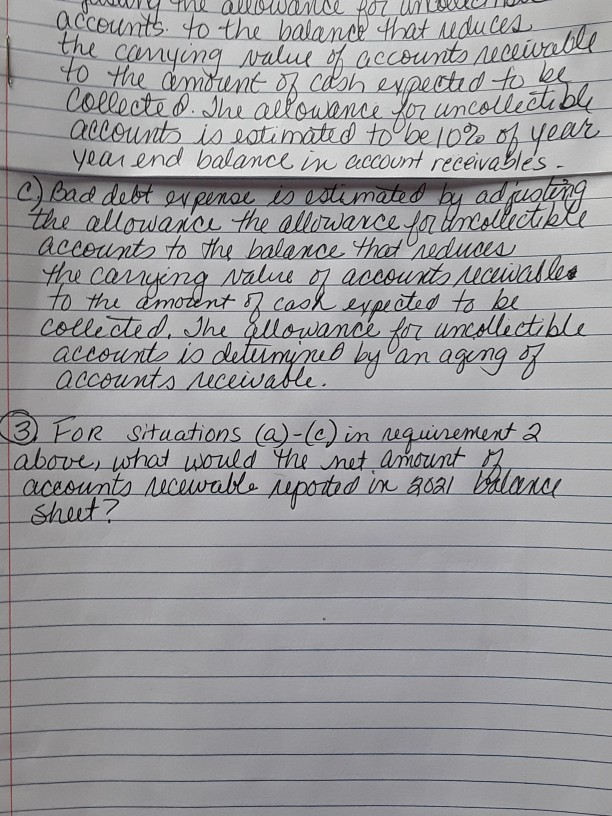 the allowance for
accounts. to the balance that reduces
the carrying value of accounts receivable
to the amount of cash expected to be
collected. The allowance for uncollectible
accounts is estimated to be 10% of year
year end balance in account receivables.
C) Bad debt expense is estimated by adjusting
the allowance the allowance for uncollectible
accounts to the balance that reduces
the carrying value of accounts receivable
to the amount of cash expected to be
collected. The allowance for uncollectible
accounts is determined by an aging of
accounts receivable.
3) FOR situations (a)-(c) in requirement 2
above, what would the net amount of
accounts receivable reported in 2021 balance
sheet?